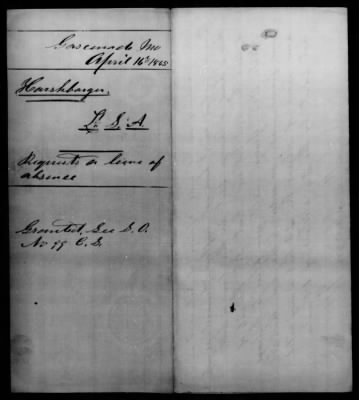 Gasconade Mo
April 16th 1865
Harshbarger,
L. S. A.
Requests a leave of
absence
Granted, See S. O.
No 99 C. S.